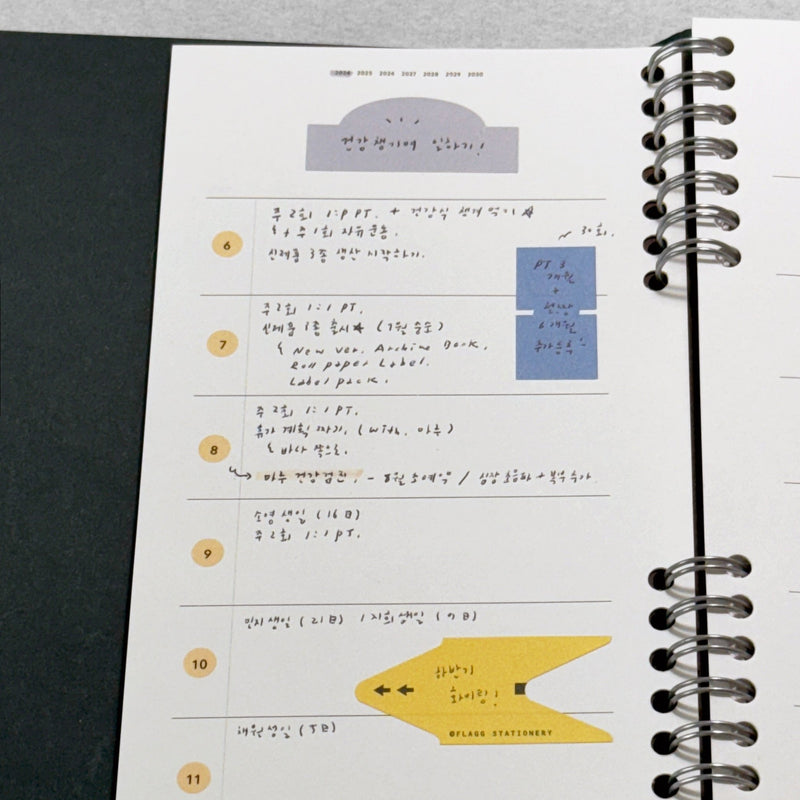 2024 2025 2026 2027 2028 2029 2030
건강챙기며 일하기!
6
주 2회 1:1 PT. + 건강식 챙겨 먹기
+ 주 1회 자유운동.
신제품 3종 생산 시작하기.
30회.
PT 3
개월
+
헬짱
6개월
추가등록!
7
주 2회 1:1 PT.
신제품 3종 출시 (7월 중순)
New ver. Archive Book.
Roll paper Label.
Label pack.
8
주 2회 1:1 PT.
휴가 계획 짜기. (with. 마루)
바다 쪽으로.
마루 건강검진! - 8월 초 예약 / 심장초음파 + 복부 추가.
9
소영 생일 (16日)
주 2회 1:1 PT.
10
민지 생일 (21日) / 지희 생일 (9日)
하반기
화이팅!
@FLAGG STATIONERY
11
채원 생일 (5日)